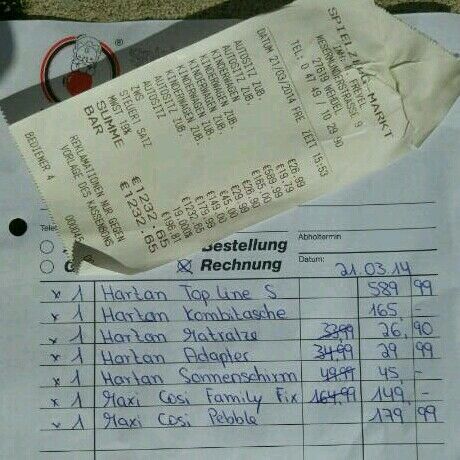 SPIELZEUG-MARKT
INH. FREVEL
WESERMÜNDERSTRASSE 9
27619 WEHDEL
TEL: 0 47 49 / 10 29 90
DATUM 21/03/2014 FRE ZEIT 15:53
AUTOSITZ ZUB. €26.99
AUTOSITZ ZUB. €19.79
KINDERWAGEN €589.99
KINDERWAGEN ZUB. €165.00
KINDERWAGEN ZUB. €26.90
KINDERWAGEN ZUB. €29.99
KINDERWAGEN ZUB. €45.00
AUTOSITZ ZUB. €149.00
AUTOSITZ €179.99
€1232.65
SATZ 19.00%
€196.81
SUMME €1232.65
BAR €1232.65
REKLAMATIONEN NUR GEGEN
VORLAGE DES KASSENBONS
BEDIENER 4
Bestellung
Rechnung
Abholtermin
Datum: 21.03.14
x 1 Hartan Top Line S 589 99
x 1 Hartan Kombitasche 165,-
x 1 Hartan Matratze 33,99 26,90
x 1 Hartan Adapter 34,99 29 99
x 1 Hartan Sonnenschirm 49,99 45 -
x 1 Maxi Cosi Family Fix 164,99 149,-
x 1 Maxi Cosi Pebble 179 99